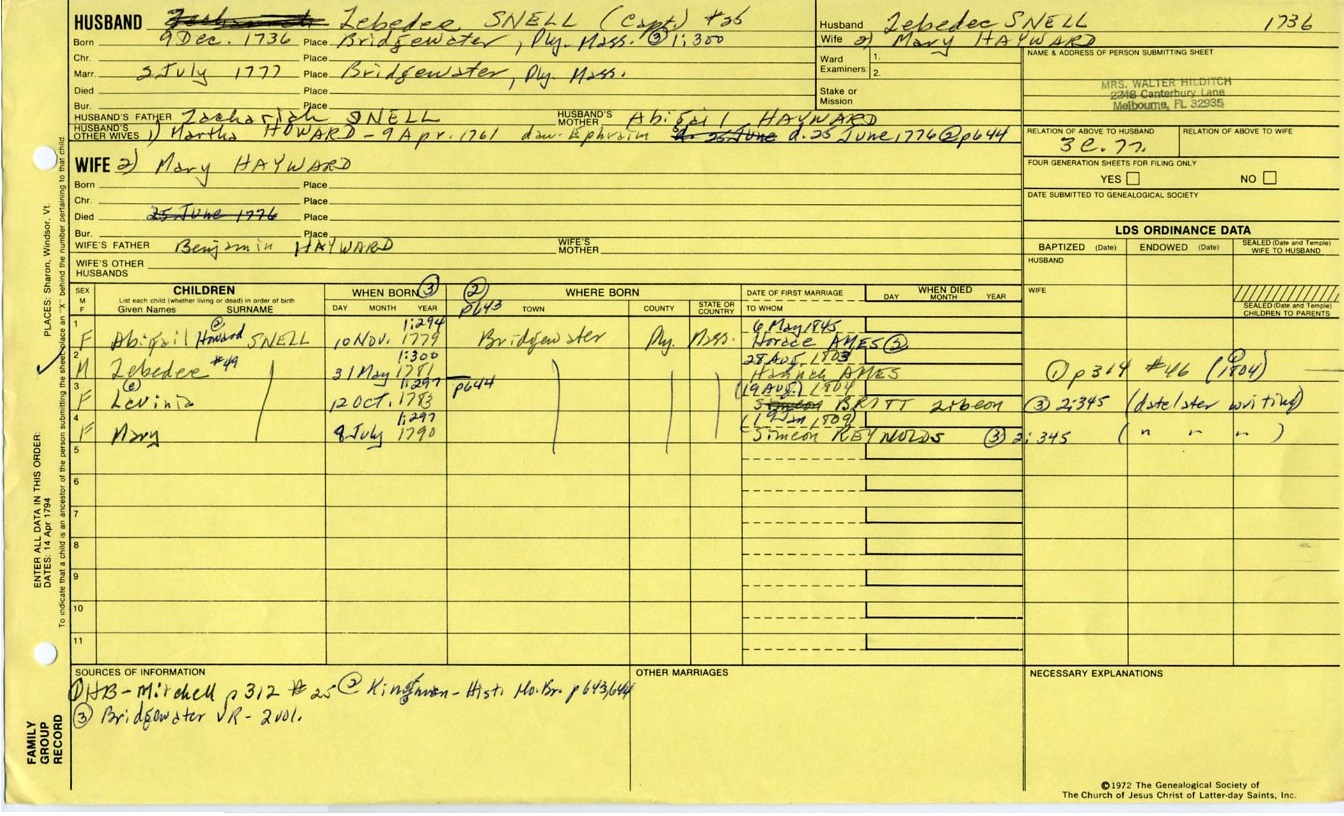 HUSBAND Zebedee SNELL (Capt) #26
Born 9 Dec. 1736 Place Bridgewater, Ply. Mass. ③ 1:300
Chr. Place
Marr. 2 July 1777 Place Bridgewater, Ply. Mass.
Died Place
Bur. Place
HUSBAND'S FATHER Zachariah SNELL HUSBAND'S MOTHER Abigail HAYWARD
HUSBAND'S OTHER WIVES 1) Martha HOWARD - 9 Apr. 1761 dau. Ephraim d. 25 June d. 25 June, 1776 ② p644
Husband Zebedee SNELL 1736
Wife 2) Mary HAYWARD
Ward 1.
Examiners: 2.
Stake or Mission
NAME & ADDRESS OF PERSON SUBMITTING SHEET
MRS. WALTER HILDITCH
2248 Canterbury Lane
Melbourne, FL 32935
RELATION OF ABOVE TO HUSBAND RELATION OF ABOVE TO WIFE
FOUR GENERATION SHEETS FOR FILING ONLY
YES NO
DATE SUBMITTED TO GENEALOGICAL SOCIETY
WIFE 2) Mary HAYWARD
Born Place
Chr. Place
Died 25 June 1776 Place
Bur. Place
WIFE'S FATHER Benjamin HAYWARD WIFE'S MOTHER
WIFE'S OTHER HUSBANDS
LDS ORDINANCE DATA
BAPTIZED (Date) ENDOWED (Date) SEALED (Date and Temple) WIFE TO HUSBAND
HUSBAND
WIFE
SEALED (Date and Temple) CHILDREN TO PARENTS
SEX M F CHILDREN List each child (whether living or dead) in order of birth Given Names SURNAME
WHEN BORN ③ DAY MONTH YEAR
② p643 WHERE BORN TOWN COUNTY STATE OR COUNTRY
DATE OF FIRST MARRIAGE TO WHOM
WHEN DIED DAY MONTH YEAR
1 F Abigail Howard SNELL 1:294 10 Nov. 1779 Bridgewater Ply. Mass. 6 May 1845 Horace AMES ③
2 M Zebedee #49 1:300 31 May 1781 28 Aug. 1803 Hannah AMES ① p314 #46 (1804)
3 F Levinia 1:297 12 OCT. 1783 p644 (19 Aug) 1804 Simeon BRITT Zibeon ③ 2:345 (date later writing)
4 F Mary 1:297 8 July 1790 19 Jan 1809 Simeon REYNOLDS ③ 2:345 ( " " " )
5
6
7
8
9
10
11
SOURCES OF INFORMATION
① HB - Mitchell p312 #25 ② Kingman - Hist. No. Br. p643, 644
③ Bridgewater VR - 2 vol.
OTHER MARRIAGES
NECESSARY EXPLANATIONS
©1972 The Genealogical Society of
The Church of Jesus Christ of Latter-day Saints, Inc.
PLACES: Sharon, Windsor, Vt.
ENTER ALL DATA IN THIS ORDER:
DATES: 14 Apr 1794
To indicate that a child is an ancestor of the person submitting the sheet, place an "X" behind the number pertaining to that child.
FAMILY
GROUP
RECORD